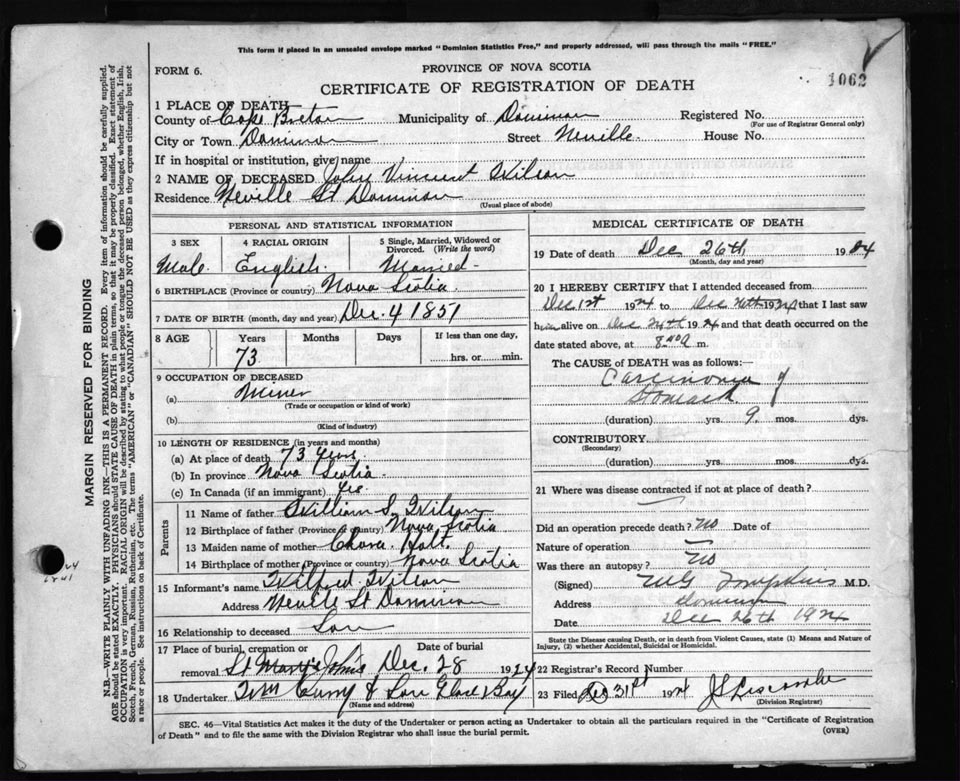 This form if placed in an unsealed envelope marked "Dominion Statistics Free," and properly addressed, will pass through the mails "FREE."
FORM 6.
PROVINCE OF NOVA SCOTIA
1062
CERTIFICATE OF REGISTRATION OF DEATH
1 PLACE OF DEATH
County of Cape Breton Municipality of Dominion Registered No.
(For use of Registrar General only)
City or Town Dominion Street Neville House No.
If in hospital or institution, give name
2 NAME OF DECEASED John Vincent Wilson
Residence Neville St Dominion
(Usual place of abode)
PERSONAL AND STATISTICAL INFORMATION
3 SEX 4 RACIAL ORIGIN 5 Single, Married, Widowed or Divorced. (Write the word)
Male. English. Married
6 BIRTHPLACE (Province or country) Nova Scotia
7 DATE OF BIRTH (month, day and year) Dec. 4 1851
8 AGE Years Months Days If less than one day,
73 hrs. or min.
9 OCCUPATION OF DECEASED
(a) Miner
(Trade or occupation or kind of work)
(b)
(Kind of industry)
10 LENGTH OF RESIDENCE (in years and months)
(a) At place of death 73 years
(b) In province Nova Scotia
(c) In Canada (if an immigrant) yes
Parents
11 Name of father William S. Wilson
12 Birthplace of father (Province or country) Nova Scotia
13 Maiden name of mother Holt.
14 Birthplace of mother (Province or country) Nova Scotia
15 Informant's name Wilfred Wilson
Address Neville St Dominion
16 Relationship to deceased Son
17 Place of burial, cremation or
removal St Dec. 28 1924
18 Undertaker Wm Curry & Son Glace Bay
(Name and address)
MEDICAL CERTIFICATE OF DEATH
19 Date of death Dec 26th 1924
(Month, day and year)
20 I HEREBY CERTIFY that I attended deceased from
Dec 1st 1924 to Dec 26th 1924 that I last saw
him alive on Dec 1924 and that death occurred on the
date stated above, at m.
The CAUSE OF DEATH was as follows:
Carcinoma of
Stomach
(duration) yrs. 9 mos. dys.
CONTRIBUTORY
(Secondary)
(duration) yrs. mos. dys.
21 Where was disease contracted if not at place of death?
Did an operation precede death? No Date of
Nature of operation —
Was there an autopsy? No
(Signed) Tompkins M.D.
Address Dominion
Date Dec 26th 1924
State the Disease causing Death, or in death from Violent Causes, state (1) Means and Nature of Injury, (2) whether Accidental, Suicidal or Homicidal.
22 Registrar's Record Number
23 Filed Dec 31st 1924 J S Liscombe
(Division Registrar)
SEC. 46—Vital Statistics Act makes it the duty of the Undertaker or person acting as Undertaker to obtain all the particulars required in the "Certificate of Registration
of Death" and to file the same with the Division Registrar who shall issue the burial permit.
(OVER)
MARGIN RESERVED FOR BINDING
N.B.—WRITE PLAINLY WITH UNFADING INK—THIS IS A PERMANENT RECORD. Every item of information should be carefully supplied.
AGE should be stated EXACTLY. PHYSICIANS should STATE CAUSE OF DEATH in plain terms, so that it may be properly classified. Exact statement of
OCCUPATION is very important. RACIAL ORIGIN will be described by stating to what people or tongue the deceased person belonged, whether English, Irish,
Scotch, French, German, Russian, Ruthenian, etc. The terms "AMERICAN" or "CANADIAN" SHOULD NOT BE USED as they express citizenship but not
a race or people. See instructions on back of Certificate.